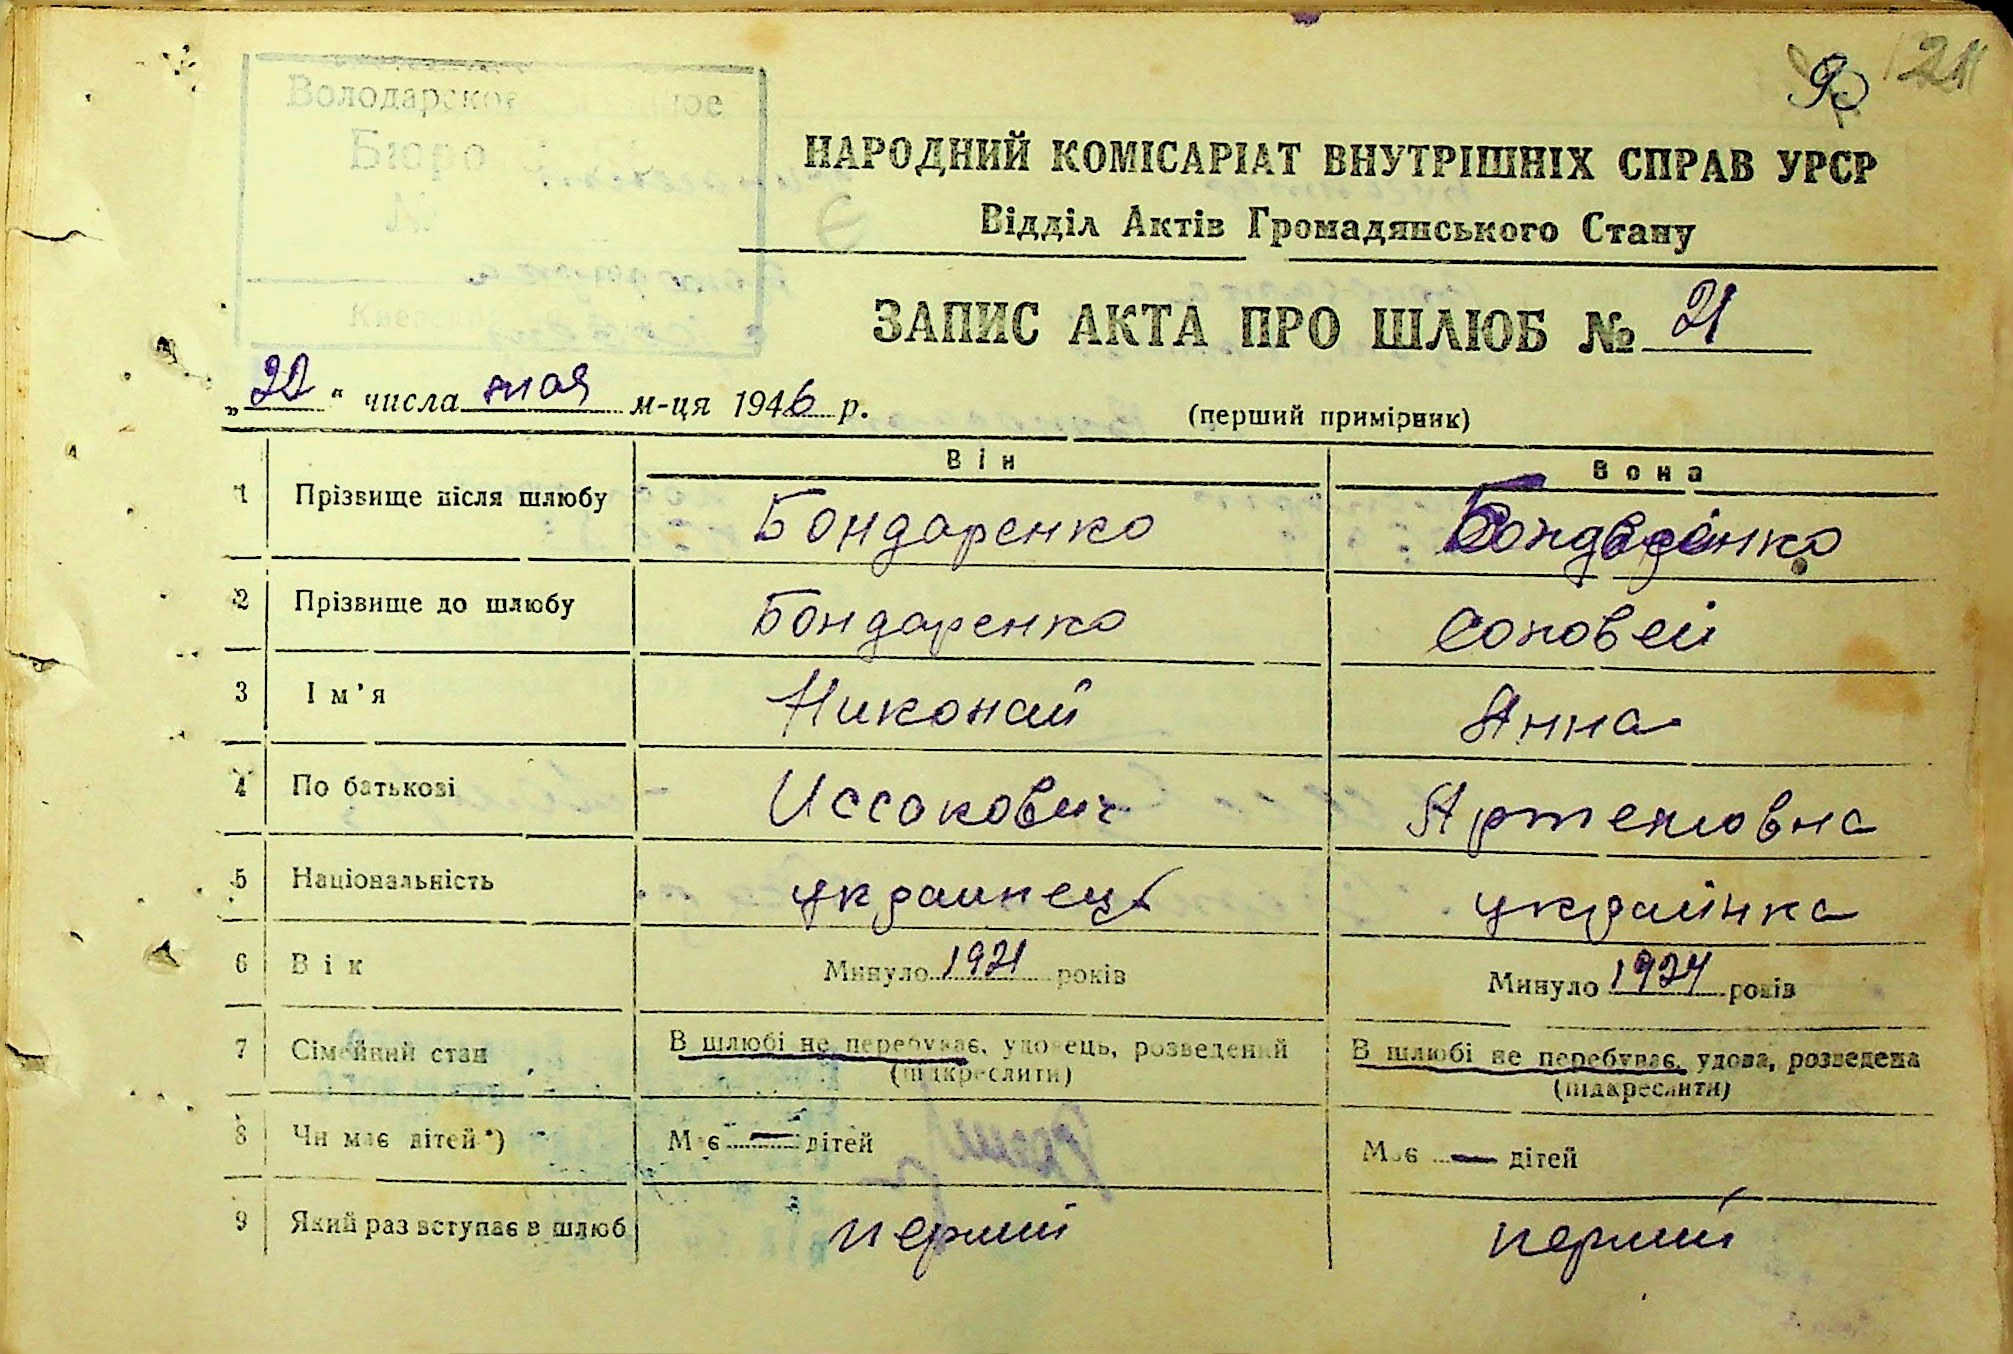 Володарское
Бюро
№
НАРОДНИЙ КОМІСАРІАТ ВНУТРІШНІХ СПРАВ УРСР
Відділ Актів Громадянського Стану
ЗАПИС АКТА ПРО ШЛЮБ № 21
„22“ числа мая м-ця 1946 р. (перший примірник)
Він Вона
1 Прізвище після шлюбу Бондаренко Бондаренко
2 Прізвище до шлюбу Бондаренко Соловей
3 Ім’я Николай Анна
4 По батькові Иссакович Артемовна
5 Національність украинець украінка
6 Вік Минуло 1921 років Минуло 1924 років
7 Сімейний стан В шлюбі не перебуває, удовець, розведений В шлюбі не перебуває, удова, розведена
(підкреслити) (підкреслити)
8 Чи має дітей*) Має — дітей Має — дітей
9 Який раз вступає в шлюб перший перший